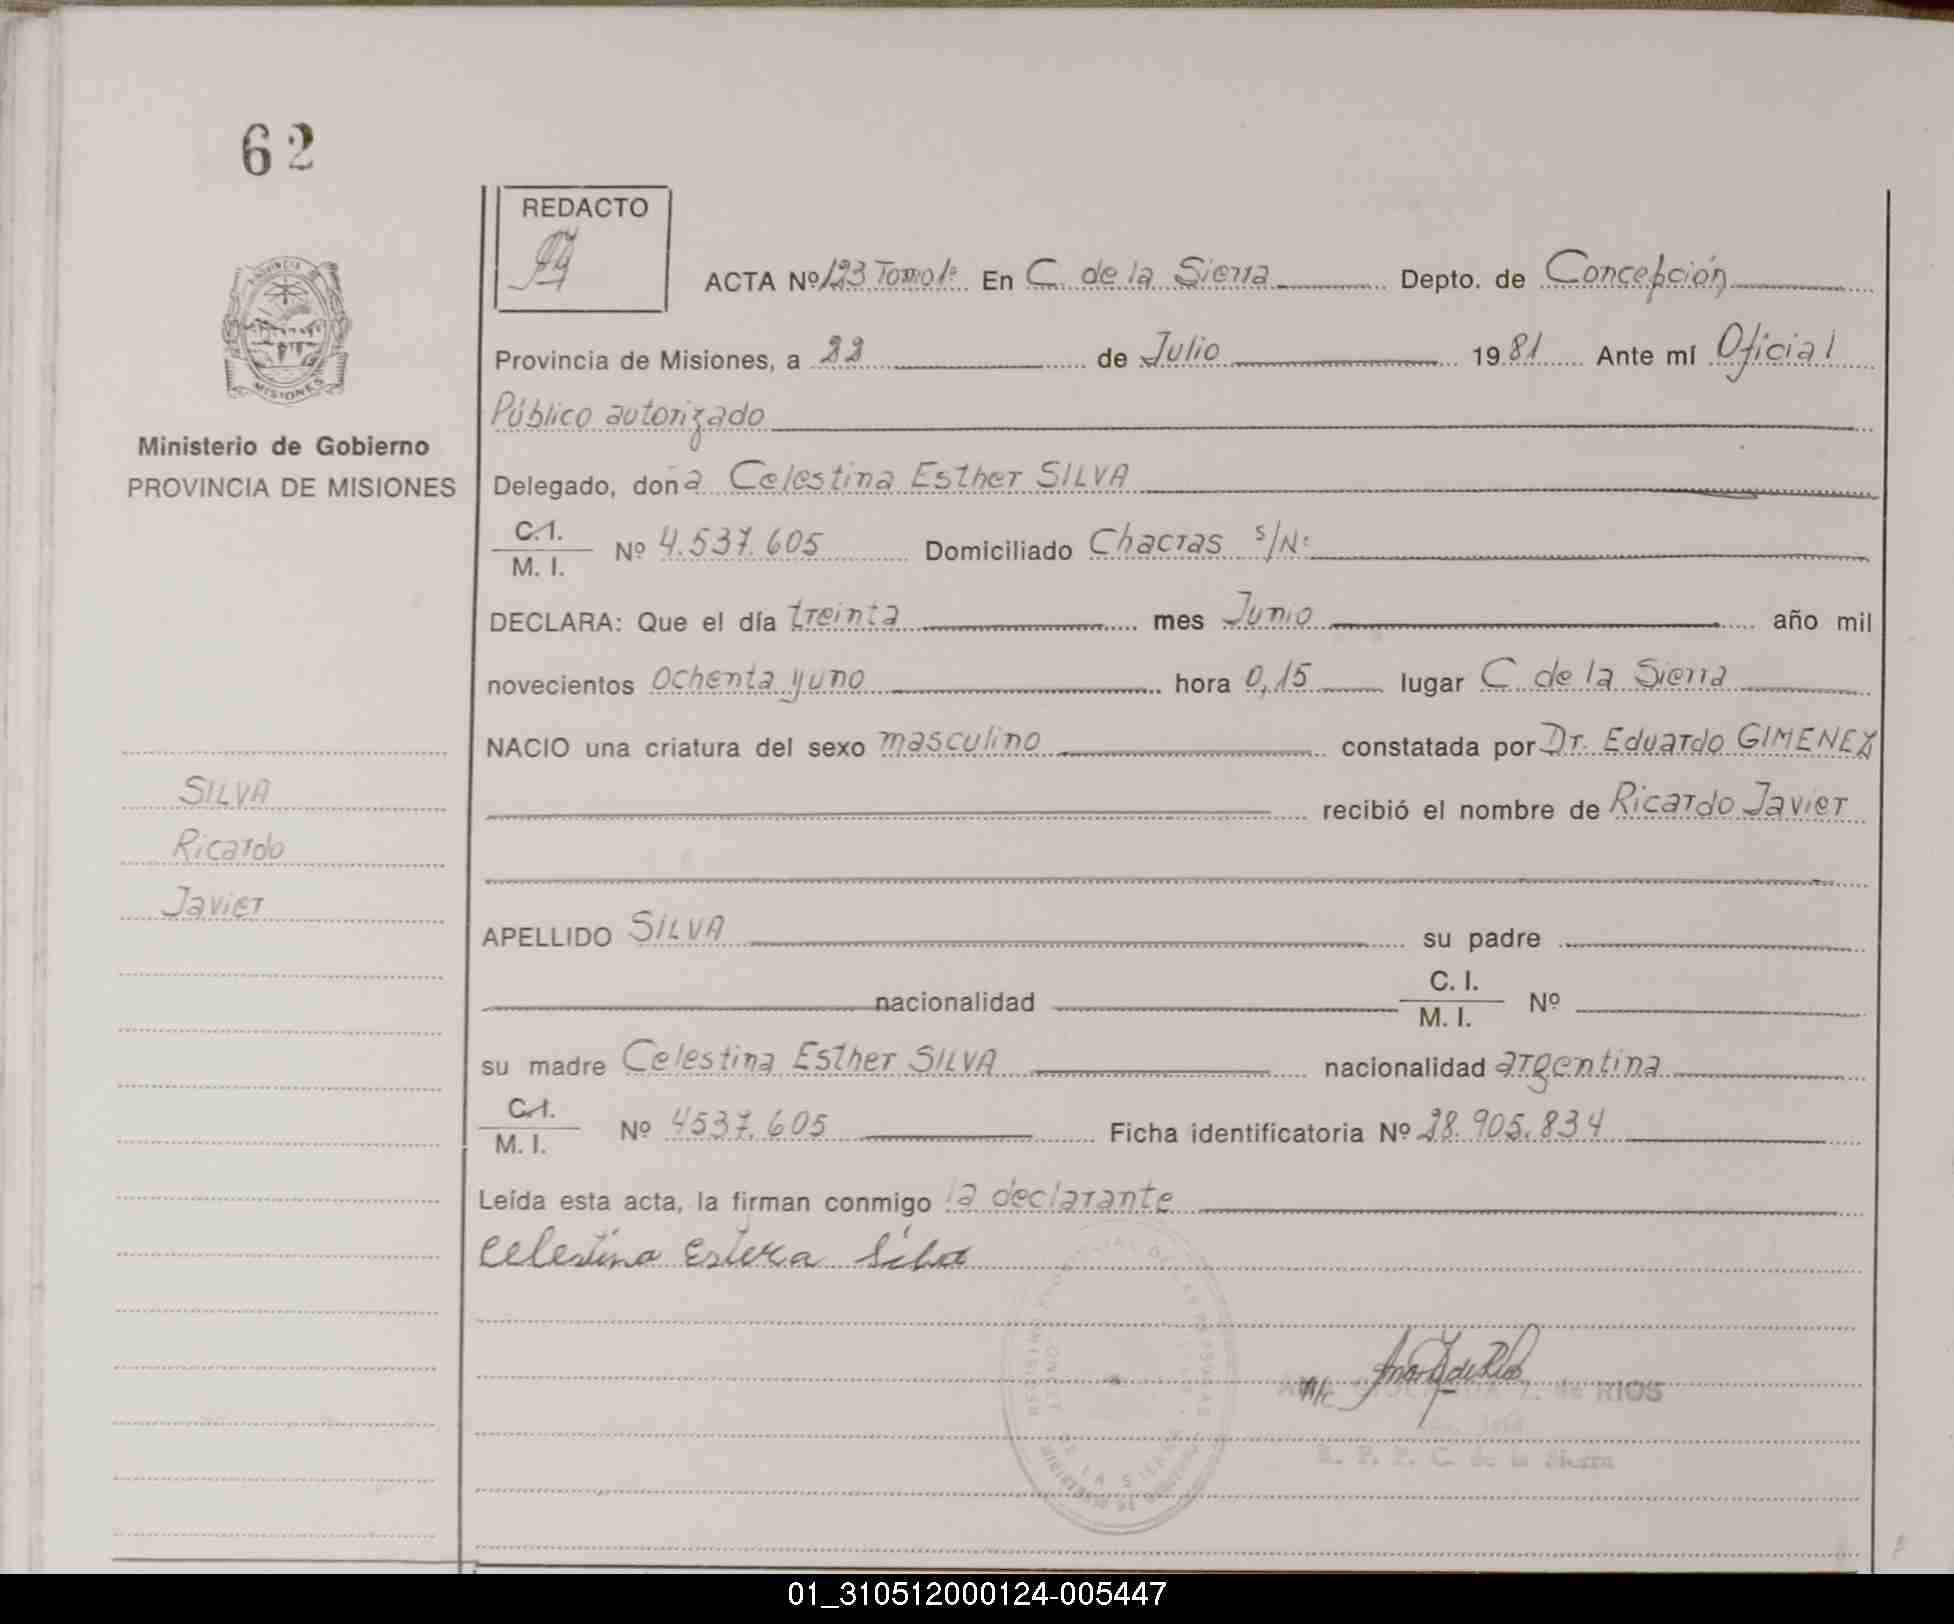 62
REDACTO
ACTA Nº 123 Tomo 1º En C. de la Sierra Depto. de Concepción
Provincia de Misiones, a 22 de Julio 1981 Ante mí Oficial
Público autorizado
Ministerio de Gobierno
PROVINCIA DE MISIONES
Delegado, doña Celestina Esther SILVA
C.I.
M. I. Nº 4.537.605 Domiciliado Chacras s/Nº
DECLARA: Que el día treinta mes Junio año mil
novecientos ochenta y uno hora 0,15 lugar C de la Sierra
NACIO una criatura del sexo masculino constatada por Dr. Eduardo GIMENEZ
recibió el nombre de Ricardo Javier
SILVA
Ricardo
Javier
APELLIDO SILVA su padre
nacionalidad C. I.
M. I. Nº
su madre Celestina Esther SILVA nacionalidad argentina
C.I.
M. I. Nº 4537.605 Ficha identificatoria Nº 28.905.834
Leída esta acta, la firman conmigo la declarante
Celestina Estera Silva
de RIOS
R. P. P. C. de la Sierra
01_310512000124-005447